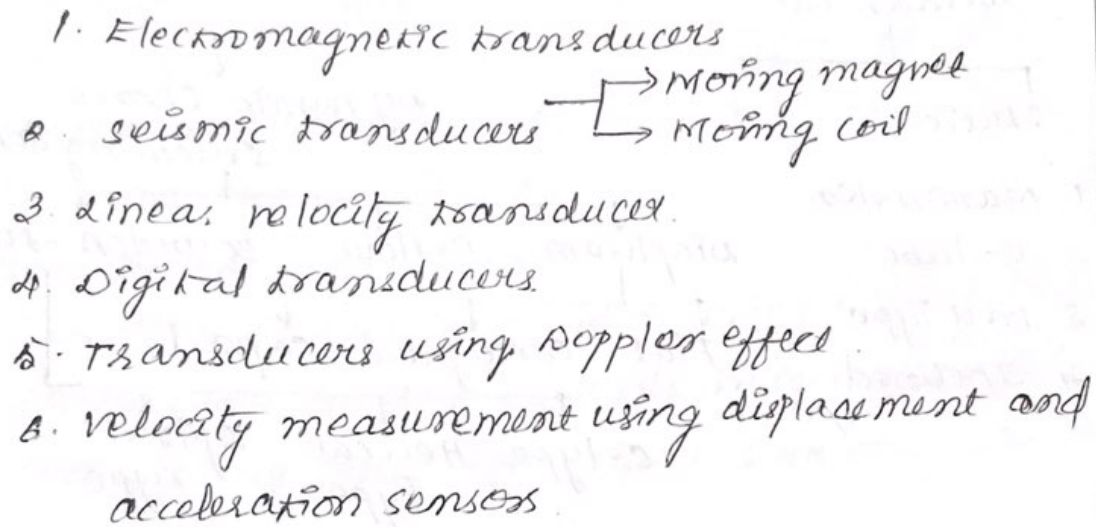 1. Electromagnetic transducers
→ Moving magnet
2. seismic transducers → Moving coil
3. Linear velocity transducer.
4. Digital transducers.
5. Transducers using Doppler effect.
6. velocity measurement using displacement and
acceleration sensors